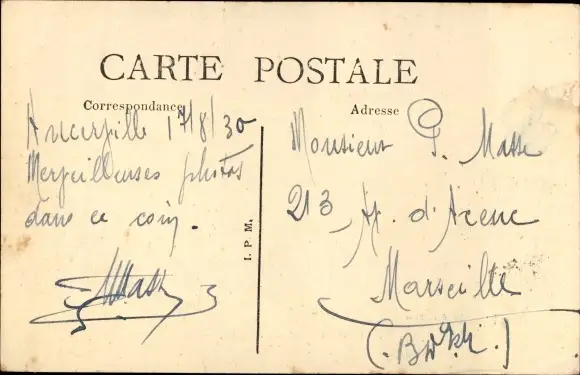 CARTE POSTALE
Correspondance
Adresse
Ancerville 17/8/30
Merveilleuses photos
dans ce coin.
Masse
I. P. M.
Monsieur P. Masse
213, Av. d'Arenc
Marseille
(B. du Rh.)